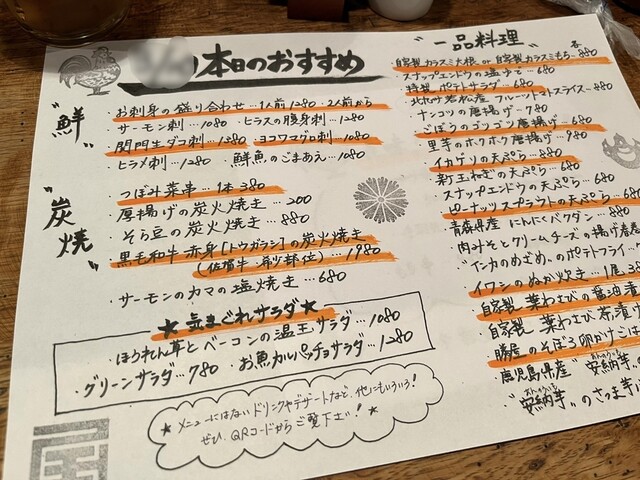 本日のおすすめ
"鮮"
お刺身の盛り合わせ…1人前1280・2人前から
・サーモン刺…1080 ・ヒラスの腹身刺…1280
・関門生ダコ刺…1280 ・ヨコワマグロ刺…1080
・ヒラメ刺…1280 ・鮮魚のごまあえ…1080
"炭焼"
・つぼみ菜串…1本380
・厚揚げの炭火焼き…200
・そら豆の炭火焼き…880
・黒毛和牛 赤身[トウガラシ]の炭火焼き
(佐賀牛 希少部位)…1980
・サーモンのカマの塩焼き…680
★気まぐれサラダ★
・ほうれん草とベーコンの温玉サラダ…1080
・グリーンサラダ…780 ・お魚カルパッチョサラダ…1280
★メニューにはないドリンクやデザートなど、他にもいろいろ!
ぜひ、QRコードからご覧下さい!★
"一品料理"
・自家製カラスミ大根 or 自家製カラスミもち…各880
・スナップエンドウの塩ゆで…680
・特製 ポテトサラダ…680
・北九州若松産 フルーツトマトスライス…880
・ナンコツの唐揚げ…780
・ごぼうのゴツゴツ唐揚げ…680
・里芋のホクホク唐揚げ…980
・イカゲソの天ぷら…880
・新玉ねぎの天ぷら…680
・スナップエンドウの天ぷら…680
・ピーナッツスプラウトの天ぷら…680
・青森県産 にんにくバクダン…880
・肉みそとクリームチーズの揚げ春巻
・"インカのめざめ"のポテトフライ
・イワシのぬか炊き…1尾38
・自家製 葉わさびの醤油漬
・自家製 葉わさび 茶漬け
・勝屋のそぼろ卵かけご飯
・鹿児島県産 "安納芋"
・"安納芋"のさつま